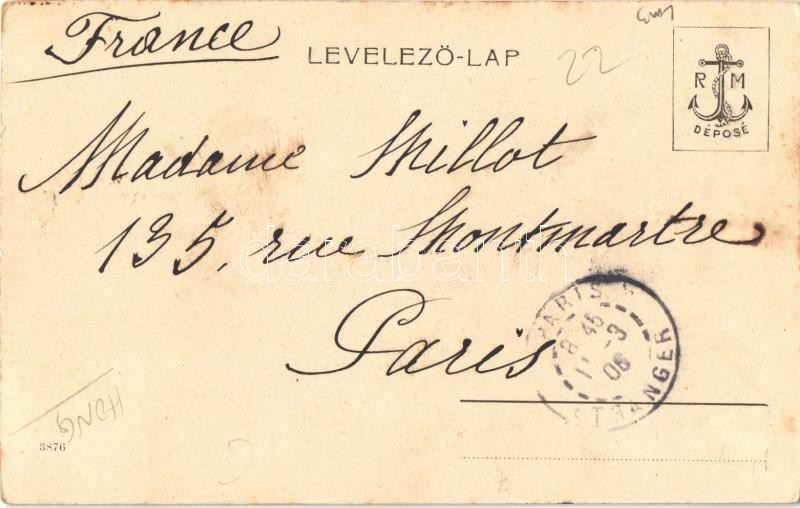 France
LEVELEZŐ-LAP
22
R M
DÉPOSÉ
Madame Millot
135, rue Montmartre
Paris
darabanth
PARIS
8 45
3
06
ETRANGER
3876